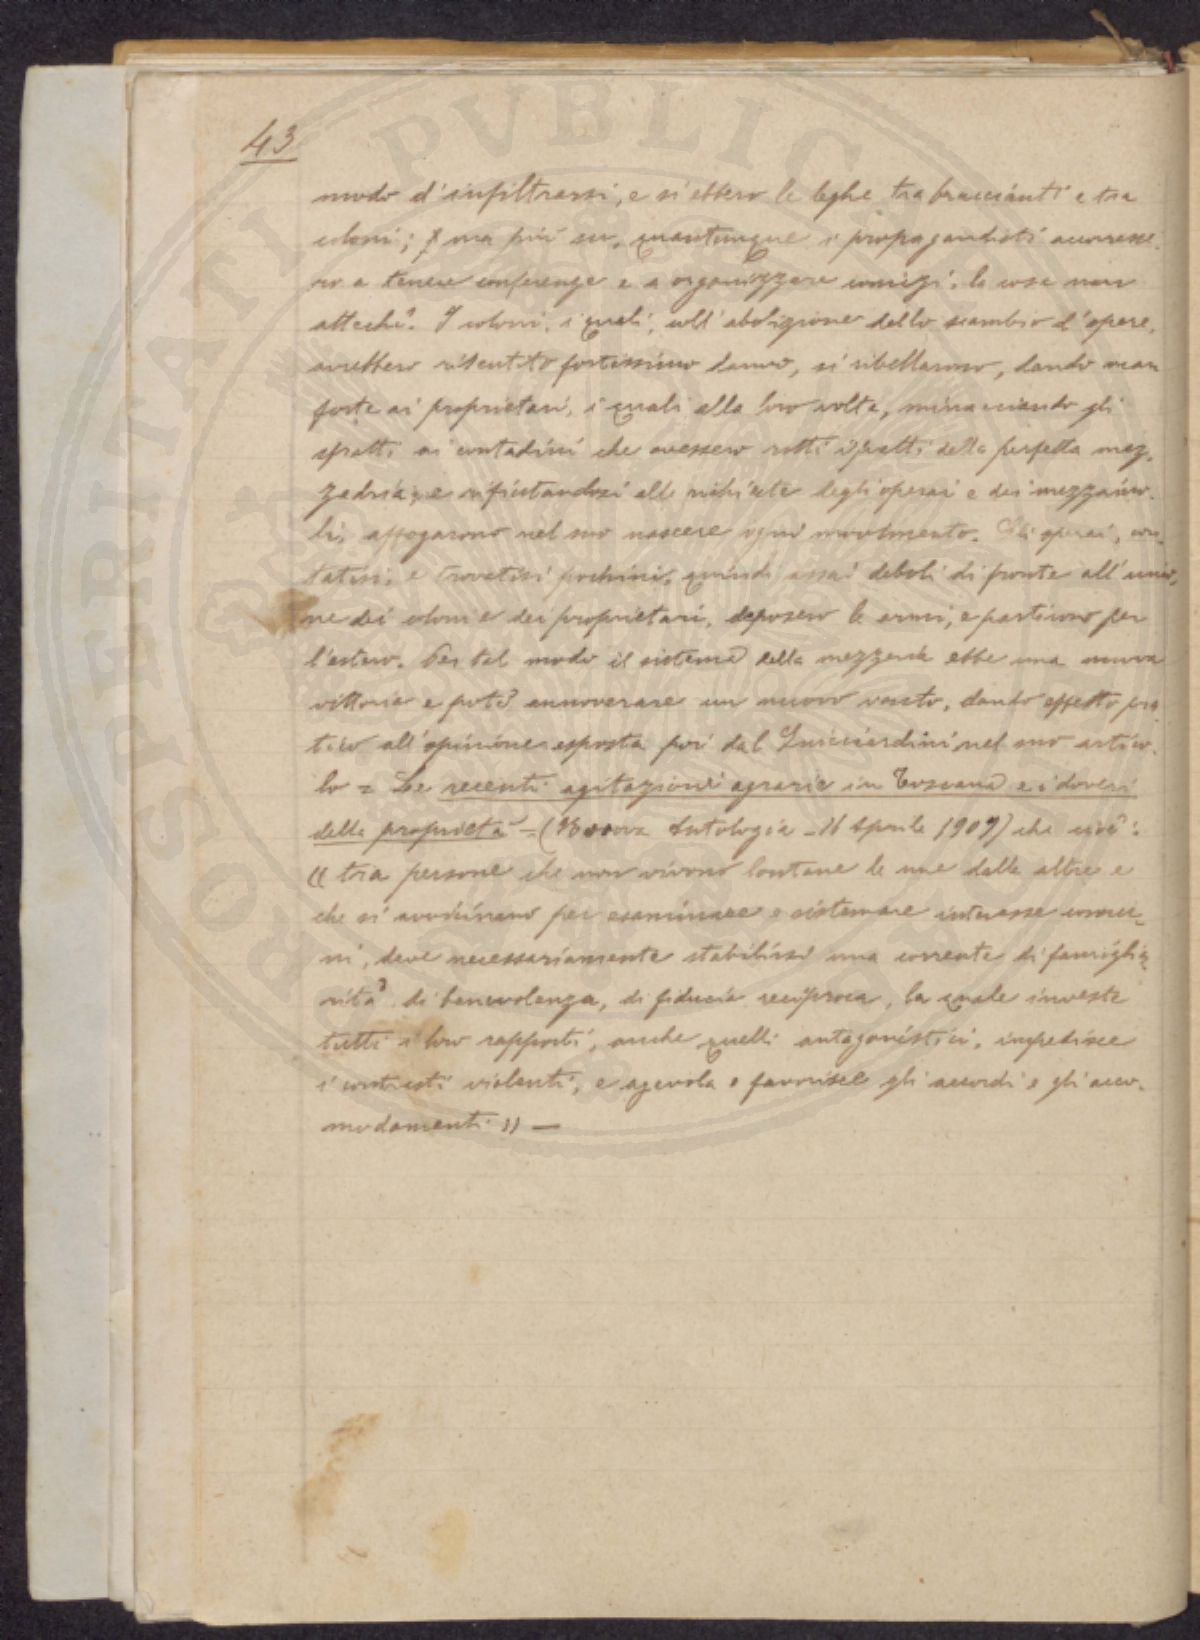 43
modo d'infiltrarsi, e si ebbero le leghe tra braccianti e tra
coloni; ma più su, quantunque i propagandisti accorresse-
ro a tenere conferenze e a organizzare comizi, la cosa non
attechì. I coloni, i quali, coll'abolizione dello scambio d'opere,
avrebbero risentito fortissimo danno, si ribellarono, dando man
forte ai proprietari, i quali alla loro volta, minacciando gli
sfratti ai contadini che avessero rotti i patti della perfetta mez-
zadria, e rifiutandosi alle richieste degli operai e dei mezzaiuo-
li, affogarono nel suo nascere ogni movimento. Gli operai, con-
tatisi, e trovatisi pochini, quindi assai deboli di fronte all'unio-
ne dei coloni e dei proprietari, deposero le armi, e partirono per
l'estero. Per tal modo il sistema della mezzeria ebbe una nuova
vittoria e potè annoverare un nuovo vanto, dando effetto pra-
tico all'opinione esposta poi dal Guicciardini nel suo artico-
lo = Le recenti agitazioni agrarie in Toscana e i doveri
della proprietà = (Nuova Antologia - 16 Aprile 1907) che cioè:
(( tra persone che non vivono lontane le une dalle altre e
che si avvicinano per esaminare e sistemare interesse comu-
ni, deve necessariamente stabilirsi una corrente di famiglia-
rità di benevolenza, di fiducia reciproca, la quale investe
tutti i loro rapporti, anche quelli antagonistici, impedisce
i contrasti violenti, e agevola e favorisce gli accordi e gli acco-
modamenti )) —
PVBLICAE
PROSPERITATI